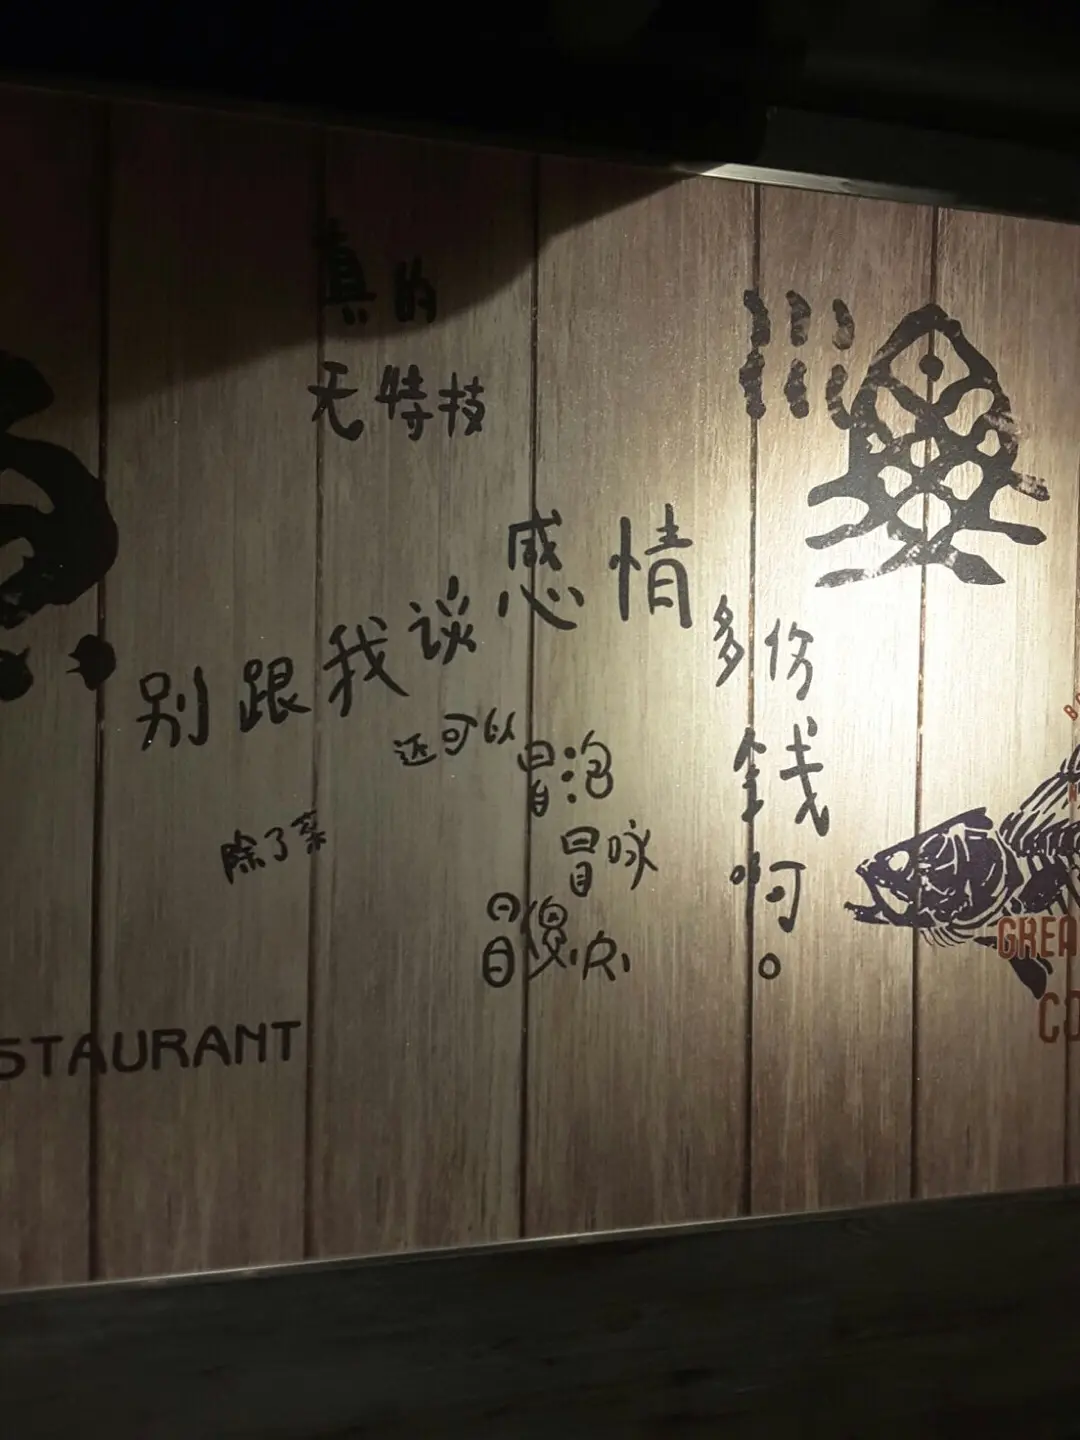 真的
无特技
别跟我谈感情
多伤
錢
啊。
还可以
冒泡
冒咏
冒傻气
除了菜
STAURANT
GREA
CO